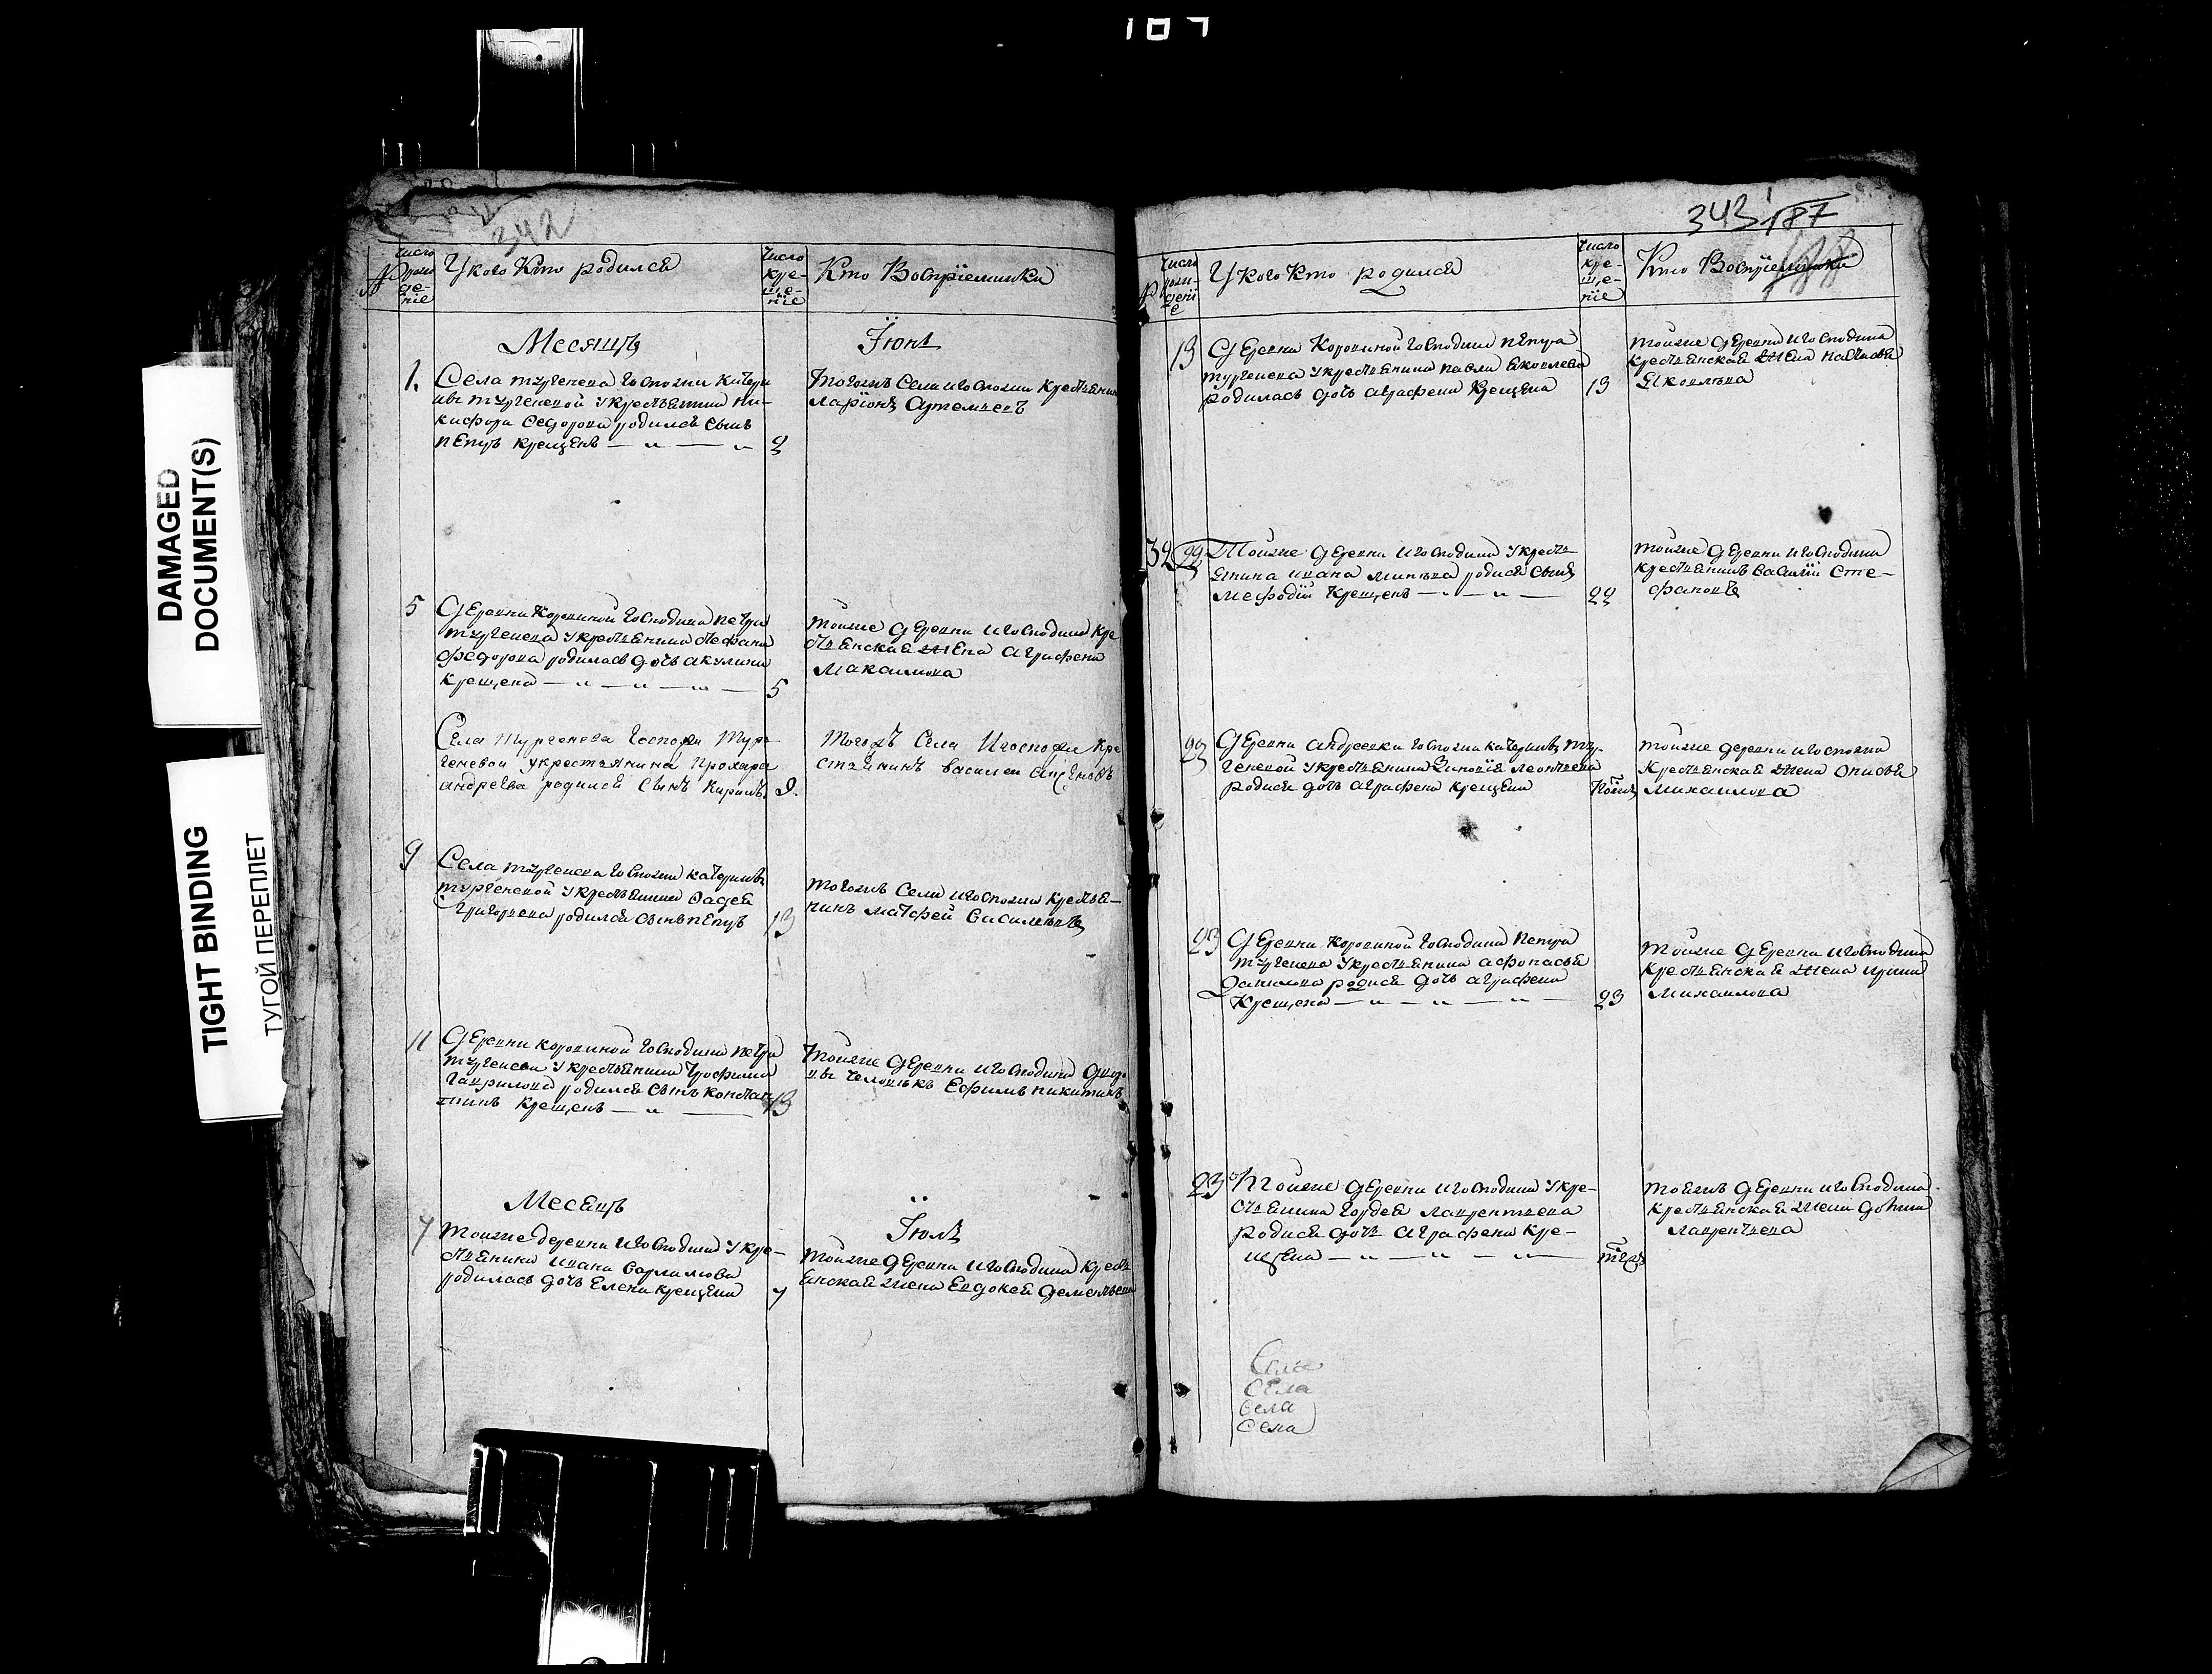 187
DAMAGED
DOCUMENT(S)
TIGHT BINDING
ТУГОЙ ПЕРЕПЛЕТ
342
Число
рож
де-
нїе
У кого Кто родился
Число
кре-
ще-
нїе
Кто Воспрїемники
Месяцъ Їюнь
1.
Села тургенева госпожи катери
ны тургеневой у крестьянина ни-
кифора Федорова родился сынъ
пЕтръ крещенъ 2
Тогожъ Села и госпожи крестьянинъ
ларїонъ Артемьевъ
5
дЕревни Коровиной господина петра
тургенева у крестьянина стефана
федорова родилась дочь акулина
крещена 5
тойже дЕревни и господина кре
стьянская жена аграфена
Максимова
Села тургенева госпожи тург-
геневой у крестьянина прохора
андреева родился сынъ Кирилъ. 9.
тогожъ Села и госпожи кре
стьянинъ василеи
9
Села тургенева госпожи катерины
тургеневой у крестьянина Фадея
Григорьева родился сынъ пЕтръ 13
тогожъ Села и госпожи крестья-
нинъ матфей василиевъ
11
дЕревни коровиной господина петра
тургенева у крестьянина трофима
гаврилова родился сынъ констан
тинъ крещенъ 13
тойже дЕревни и господина дворо
вы человѣкъ Ефимъ никитинъ
Месецъ Їюль
7
тойже деревни и господина у кре-
стьянина ивана варламова
родилась дочь Елена крещена 7
тойже дЕревни и господина кресть
янская жена Евдокея дементьева
343 187
Число
рож-
денї
е
У кого Кто родился
Число
кре-
ще-
нїе
Кто Воспрїемники
13
дЕревни Коровиной господина пЕтра
тургенева у крестьянина павла яковлева
родилась дочь аграфена крещена 13
тойже дЕревни и господина
крестьянская жена настасья
Яковлева
32 22
Тойже дЕревни и господина у кресть
янина ивана минѣева родися сынъ
мефодїи крещенъ 22
тойже дЕревни и господина
крестьянинъ василїи сте-
фановъ
22
дЕревни андреевки госпожи катерины тур-
геневой у крестьянина Зиновїя леонтьева
родися дочь аграфена крещена
тойже деревни и госпожи
крестьянская жена
михаилова
23
дЕревни коровиной господина петра
тургенева у крестьянина афонасья
данилова родися дочь аграфена
крещена 23
тойже дЕревни и господина
крестьянская жена ирина
михаилова
23
Тойже дЕревни и господина у кре-
стьянина гордея лаврентьева
родися дочь аграфена кре-
щена
тояжъ дЕревни и господина
крестьянская жена
лаврентьева
Села
Села
Села
Села